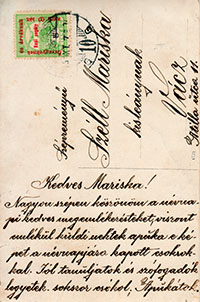 Szeill Mariska
kisleánynak
Vácz
Kedves Mariska!
Nagyon szépen köszönöm a névna-
pi kedves megemlékezésteket, viszont
emlékül küldi nektek apuka e ké-
pet a névnapjára kapott csokrok-
kal. Jól tanuljatok és szófogadók
legyetek. sokszor csókol, Apukátok